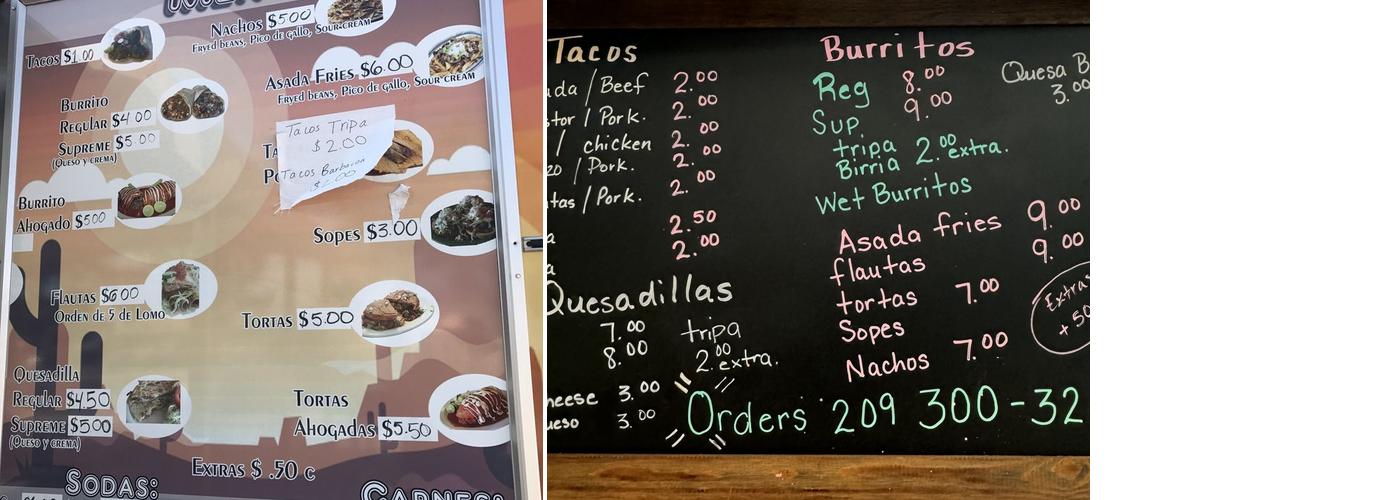 Nachos $500
Fryed beans, Pico de gallo, Sour cream
Tacos $1.00
Asada Fries $6.00
Fryed beans, Pico de gallo, Sour cream
Burrito
Regular $4.00
Supreme $5.00
(Queso y crema)
Tacos Tripa
$2.00
Tacos Barbacoa
$2.00
Burrito
Ahogado $500
Sopes $3.00
Flautas $600
Orden de 5 de Lomo
Tortas $5.00
Quesadilla
Regular $4.50
Supreme $500
(Queso y crema)
Tortas
Ahogadas $5.50
Extras $ .50 c
Sodas:
Carnes:
Tacos
ada / Beef 2.00
stor / Pork. 2.00
/ chicken 2.00
zo / Pork. 2.00
tas / Pork. 2.00
2.50
a 2.00
a
Quesadillas
7.00 tripa
8.00 2.00 extra.
heese 3.00
ueso 3.00
Burritos
Reg 8.00
Sup. 9.00
tripa
Birria 2.00 extra.
Wet Burritos
Quesa B
3.00
Asada fries 9.00
flautas 9.00
tortas 7.00
Sopes
Nachos 7.00
Extras
+ 50
Orders 209 300-32